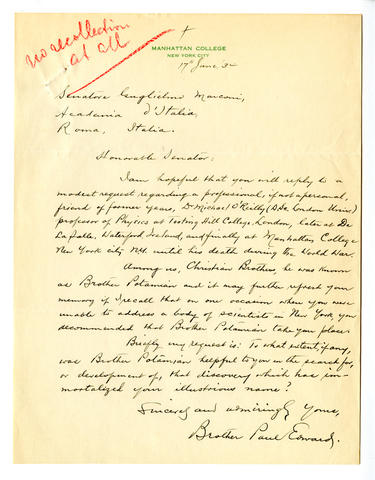 no recollection
at all
MANHATTAN COLLEGE
NEW YORK CITY
17th June, 32
Senatore Guglielmo Marconi,
Academia d'Italia,
Roma, Italia.
Honorable Senator:
I am hopeful that you will reply to a
modest request regarding a professional, if not a personal,
friend of former years, Dr Michael O'Reilly (D.Sc London Univ.)
professor of Physics at Tooting Hill College, London, later at De
La Salle, Waterford Ireland, and finally at Manhattan College
New York city N.Y. until his death during the World War.
Among us, Christian Brothers, he was known
as Brother Potamian and it may further refresh your
memory if I recall that on one occasion when you were
unable to address a body of scientists in New York you
recommended that Brother Potamian take your place.
Briefly my request is: To what extent, if any,
was Brother Potamian helpful to you in the search for,
or development of, that discovery which has im-
mortalized your illustrious name?
Sincerely and admiringly Yours,
Brother Paul Edward.